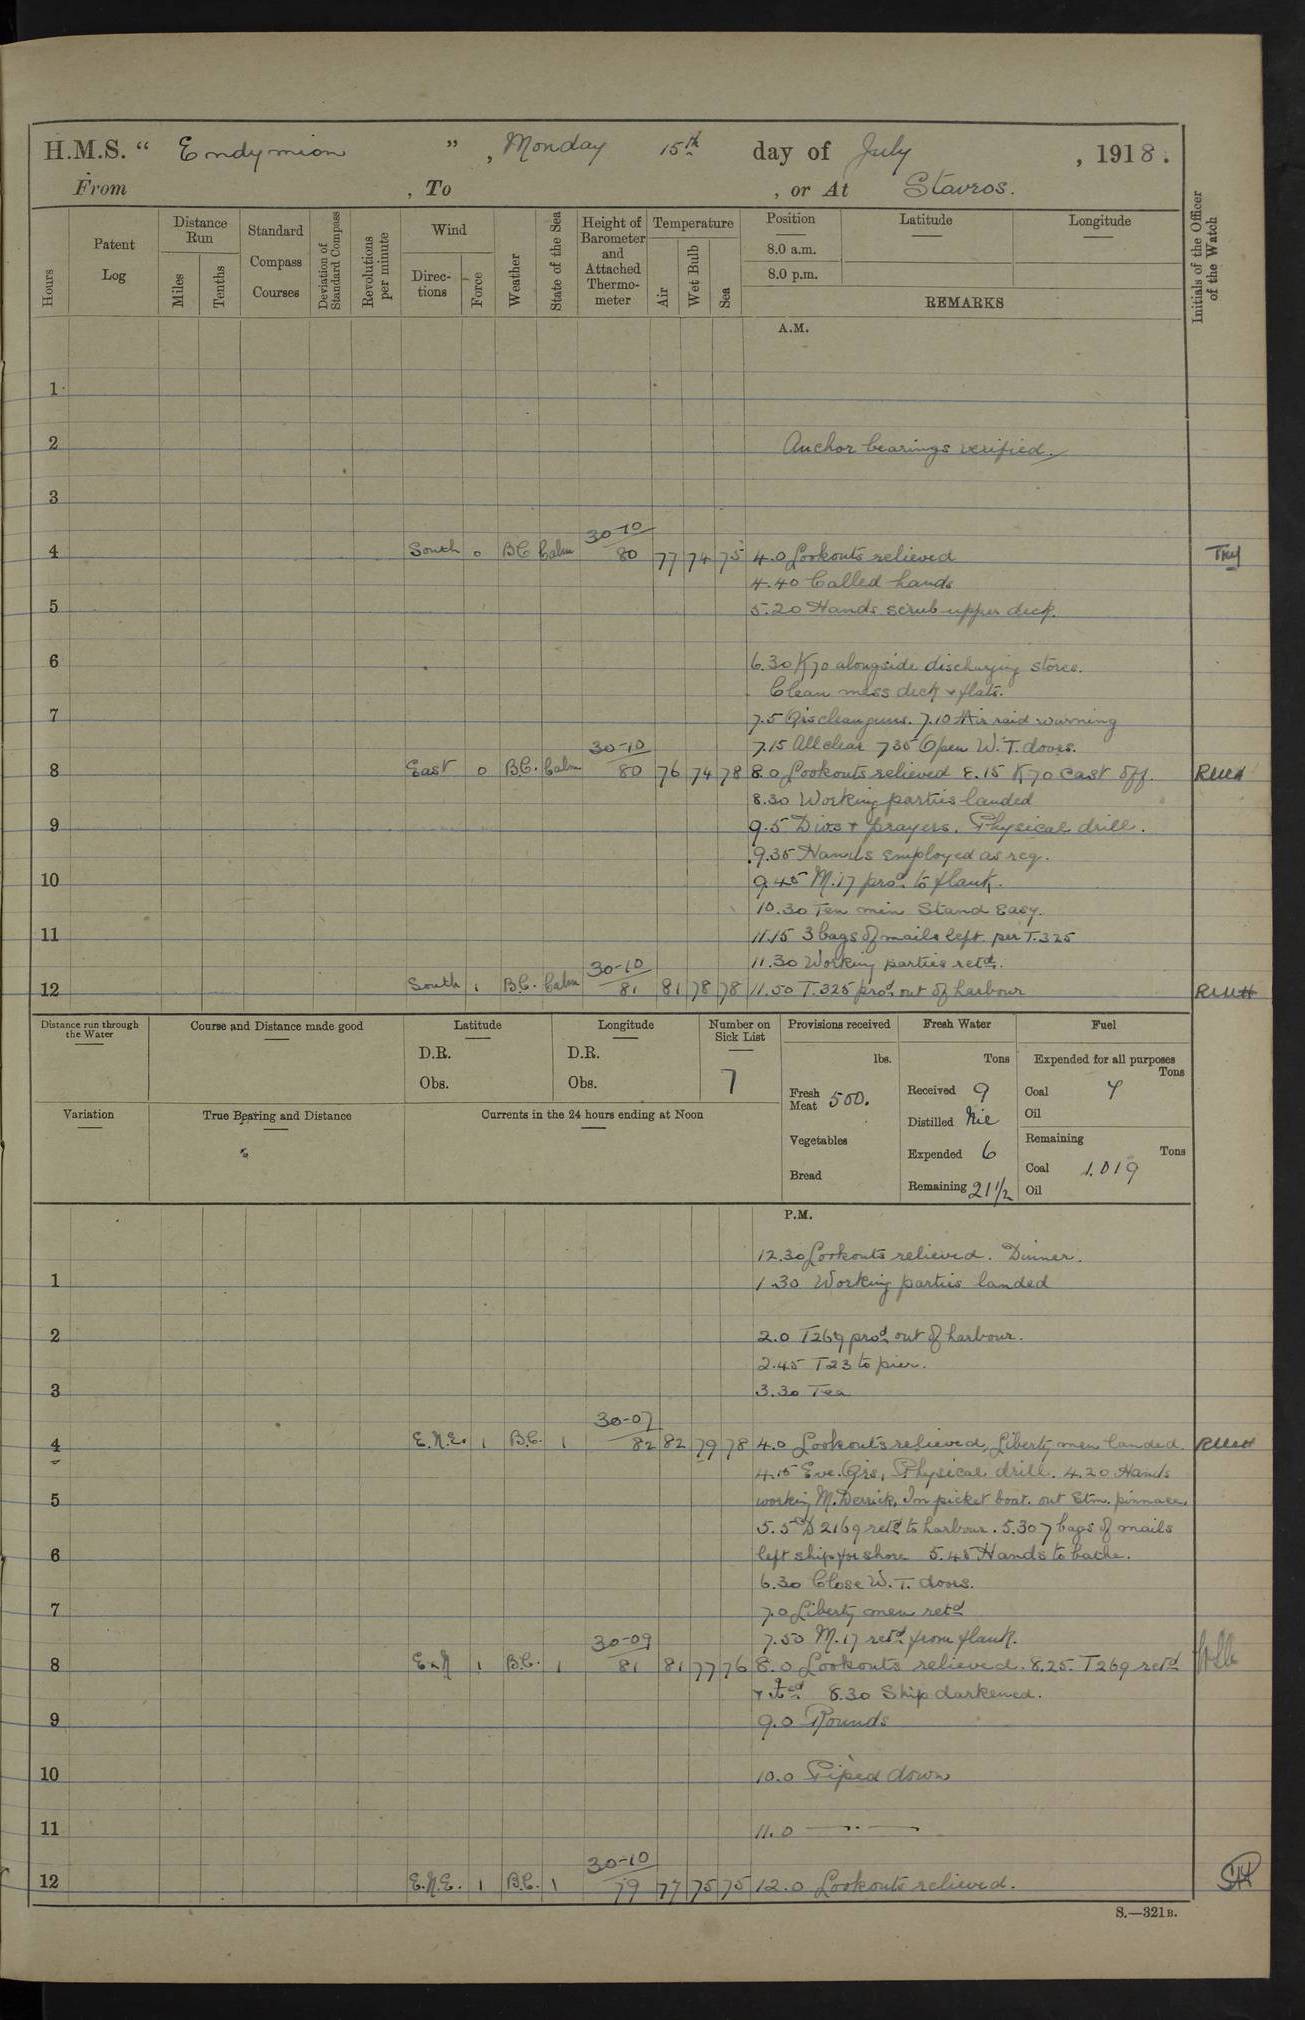 H.M.S. " Endymion " , Monday 15th day of July , 1918.
From , To , or At Stavros.
Hours
Patent Log
Distance Run
Miles
Tenths
Standard Compass Courses
Deviation of Standard Compass
Revolutions per minute
Wind
Directions
Force
Weather
State of the Sea
Height of Barometer and Attached Thermometer
Temperature
Air
Wet Bulb
Sea
Position
8.0 a.m.
8.0 p.m.
Latitude
Longitude
REMARKS
Initials of the Officer of the Watch
A.M.
1
2 Anchor bearings verified.
3
30-10
4 South 0 BC Calm 80 77 74 75 4.0 Lookouts relieved
4.40 Called hands
5 5.20 Hands scrub upper deck.
6 6.30 K70 alongside discharging stores.
Clean mess deck & flats.
7 7.5 Qrs clean guns. 7.10 Air raid warning
30-10 7.15 All clear 7.35 Open W.T. doors.
8 East 0 B.C. Calm 80 76 74 78 8.0 Lookouts relieved 8.15 K70 cast off.
8.30 Working parties landed
9 9.5 Divs & prayers. Physical drill.
9.35 Hands employed as req.
10 9.45 M.17 procd. to flank.
10.30 Ten min Stand Easy.
11 11.15 3 bags of mails left per T.325
30-10 11.30 Working parties retd.
12 South 1 B.C. Calm 81 81 78 78 11.50 T.325 procd. out of harbour
Distance run through the Water
Course and Distance made good
Latitude
D.R.
Obs.
Longitude
D.R.
Obs.
Number on Sick List
7
Provisions received
lbs.
Fresh Meat 500.
Vegetables
Bread
Fresh Water
Tons
Received 9
Distilled Nil
Expended 6
Remaining 21 1/2
Fuel
Expended for all purposes
Tons
Coal 4
Oil
Remaining
Tons
Coal 1.019
Oil
Variation
True Bearing and Distance
Currents in the 24 hours ending at Noon
P.M.
12.30 Lookouts relieved. Dinner.
1 1.30 Working parties landed
2 2.0 T269 procd. out of harbour.
2.45 T23 to pier.
3 3.30 Tea
30-07
4 E.N.E. 1 B.C. 1 82 82 79 78 4.0 Lookouts relieved, Liberty men landed.
4.15 Eve. Qrs, Physical drill. 4.20 Hands
5 working M. Derrick, In picket boat. out Stm. pinnace.
5.5 2169 retd to harbour. 5.30 7 bags of mails
6 left ship for shore 5.45 Hands to bathe.
6.30 Close W.T. doors.
7 7.0 Liberty men retd
30-09 7.50 M.17 retd. from flank.
8 1 B.C. 1 81 81 77 76 8.0 Lookouts relieved. 8.25. T269 retd
8.30 Ship darkened.
9 9.0 Rounds
10 10.0 Piped down
11 11.0
30-10
12 E.N.E. 1 B.C. 1 79 77 75 75 12.0 Lookouts relieved.
S.—321B.